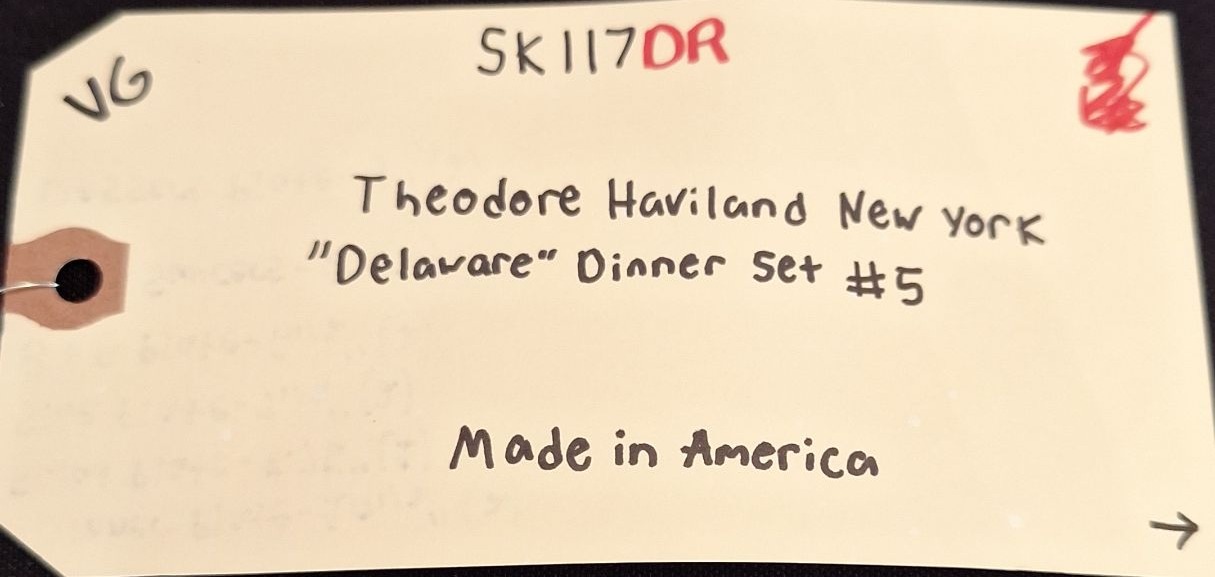 VG
SK117DR
Theodore Haviland New York
"Delaware" Dinner Set #5
Made in America
→